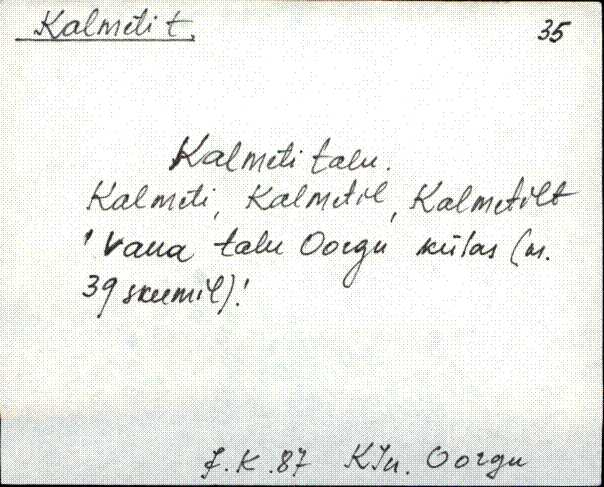 Kalmeti t.
35
Kalmeti talu.
Kalmeti, Kalmetil, Kalmetilt
'Vana talu Oorgu külas (nr.
39 skeemil)'
J.K.87 KJn. Oorgu